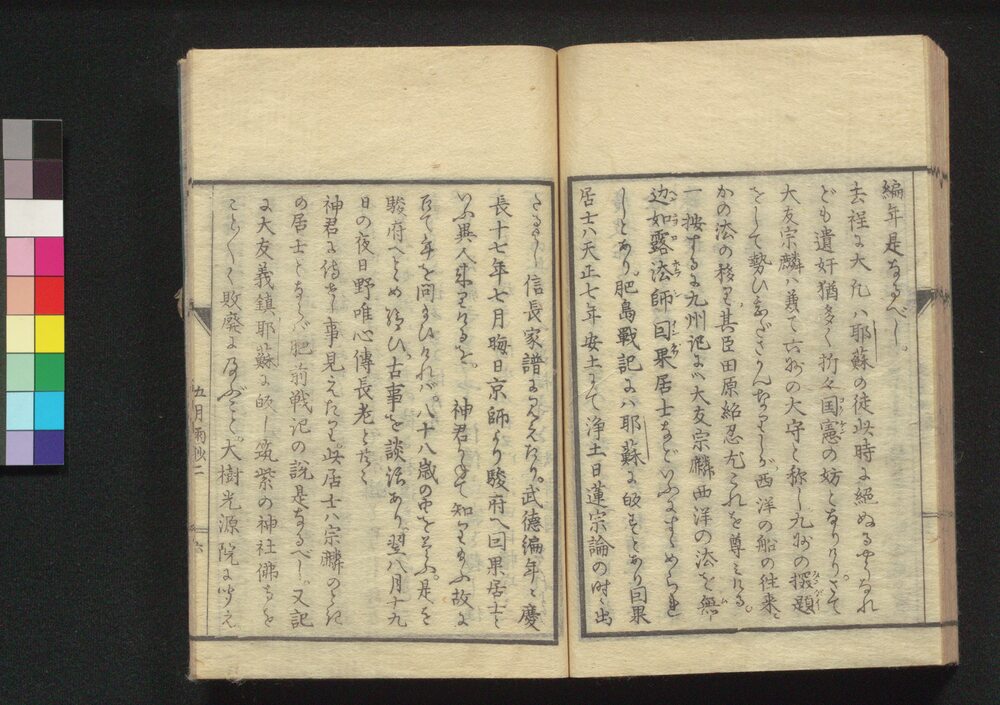 編年是なるべし。
去程に大凡ハ耶蘇の徒此時に絶ぬるやうなれ
ども遺奸猶多く折々国憲の妨となりけり。さて
大友宗麟ハ兼て六州の大守と称し九州の探題
をして勢ひさかんなりしが、西洋の船の往来に
かの法の移り、其臣田原紹忍尤これを尊ミける。
一按するに九州記に大友宗麟西洋の法を無
辺如露法師因果居士などいふにすゝめられ
しとあり。肥島戦記にハ耶蘇に帰すとあり因果
居士ハ天正七年安土にて浄土日蓮宗論の時に出
信長家譜に見えたり。武徳編年に慶
長十七年七月晦日京師より駿府へ因果居士と
いふ異人来りけるを。神君かねて知り給ふ故に
年を問まひけれバ。八十八歳の由を答ふ。是を
駿府へとゞめ給ひ、古事を談話あり翌八月十九
日の夜日野唯心傳長老と共に
神君に侍せし事見えたり。此居士ハ宗麟の
の居士となら バ肥前戦記の説是なるべし。又記
に大友義鎮耶蘇に帰し筑紫の神社佛寺を
ことごとく敗廃に及ぶこと。大樹光源院に聞え
五月雨抄二
六